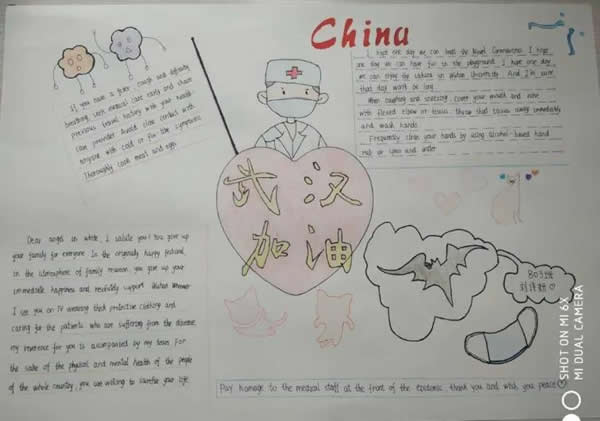 China
If you have a fever, cough and difficulty
breathing, seek medical care early and share
previous travel history with your health
care provider. Avoid close contact with
anyone with cold or flu like symptoms
Thoroughly cook meat and eggs.
I hope one day we can beat the Novel Coronavirus. I hope
one day we can have fun in the playground. I hope one day
we can enjoy the cherry in Wuhan University. And I'm sure
that day won't be long.
When coughing and sneezing, cover your mouth and nose
with flexed elbow or tissue. Throw that tissue away immediately
and wash hands
Frequently clean your hands by using alcohol-based hand
rub or soap and water
武汉
加油
Dear angel in white, I salute you! You give up
your family for everyone. In the originally happy festival,
in the atmosphere of family reunion, you give up your
immediate happiness and resolutely support Wuhan
I see you on TV wearing thick protective clothing and
caring for the patients who are suffering from the disease.
my reverence for you is accompanied by my tears. For
the sake of the physical and mental health of the people
of the whole country, you are willing to sacrifice your life.
Pay homage to the medical staff at the front of the epidemic, thank you and wish you peace
SHOT ON MI 6X
MI DUAL CAMERA